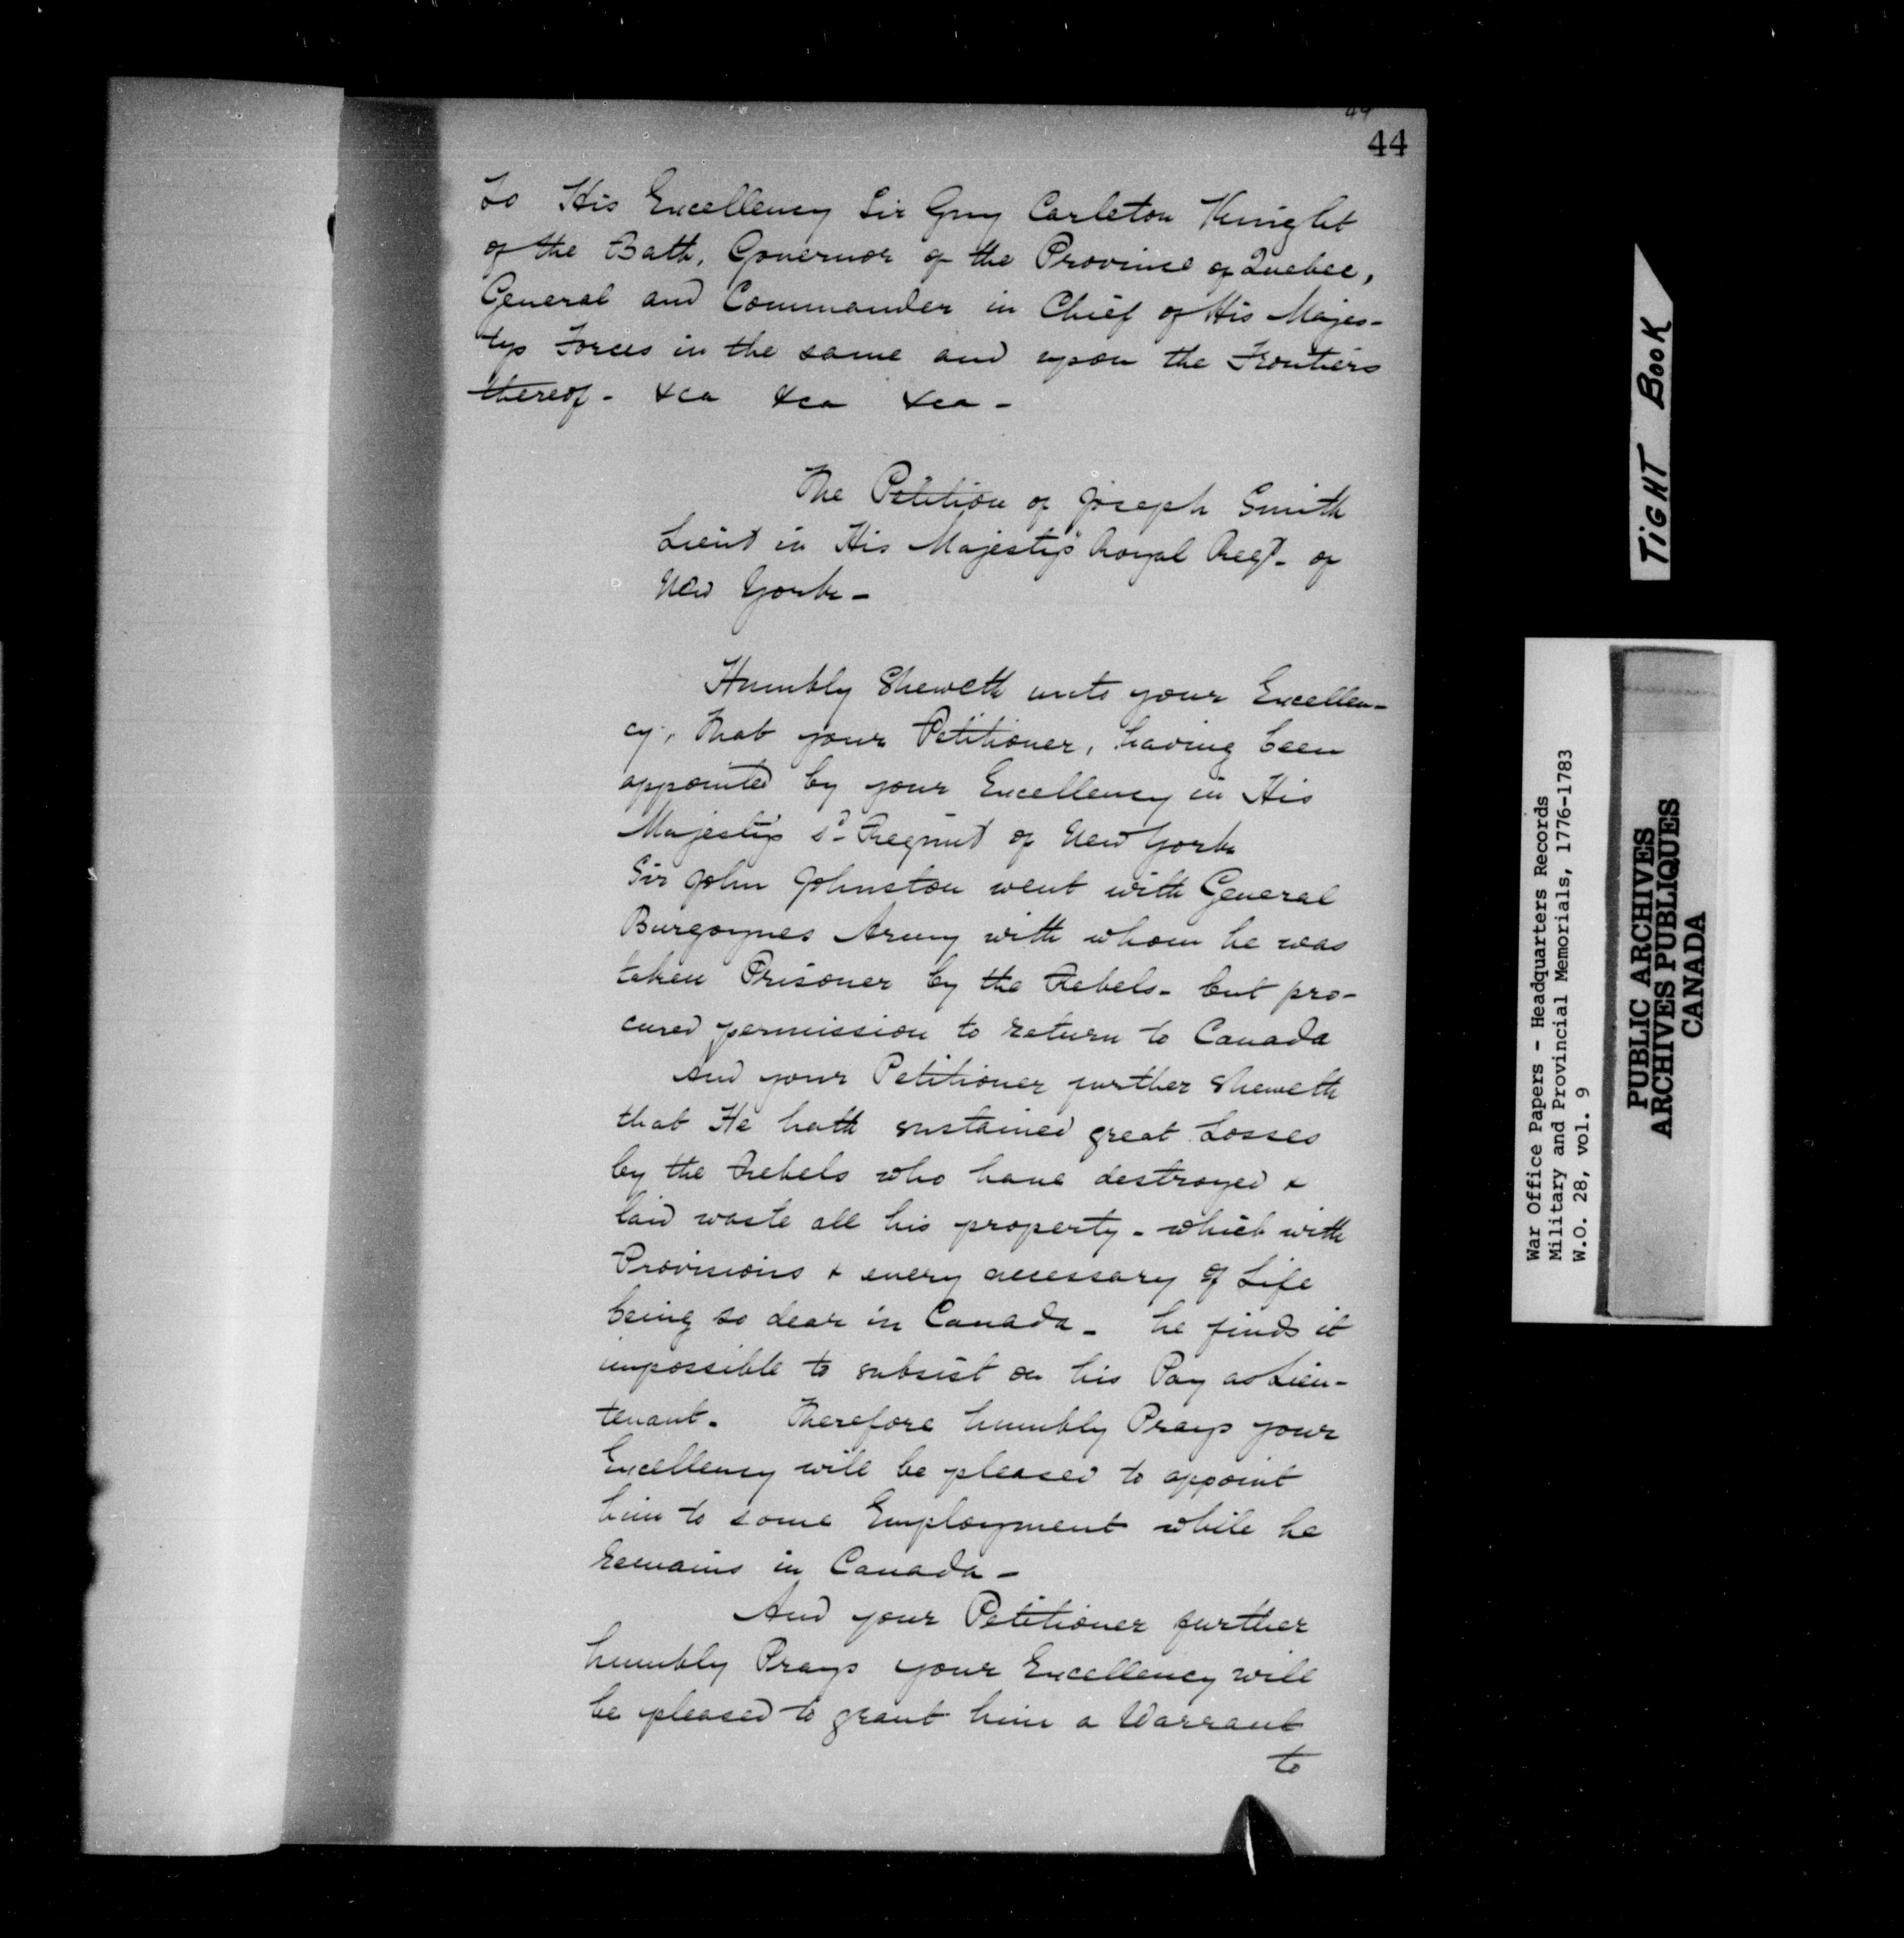 44
44
To His Excellency Sir Guy Carleton Knight
of the Bath, Governor of the Province of Quebec,
General and Commander in Chief of His Majes-
tys Forces in the same and upon the Frontiers
thereof - &ca &ca &ca -
The Petition of Joseph Smith
Lieut in His Majestys Royal Regt - of
New York -
Humbly Sheweth unto your Excellen-
cy, That your Petitioner, having been
appointed by your Excellency in His
Majestys sd Regimt of New York
Sir John Johnston went with General
Burgoynes Army with whom he was
taken Prisoner by the Rebels - but pro-
cured permission to return to Canada
And your Petitioner further Sheweth
that He hath sustained great Losses
by the Rebels who have destroyed &
laid waste all his property - which with
Provisions & every necessary of Life
being so dear in Canada - he finds it
impossible to subsist on his Pay as Lieu-
tenant - Therefore humbly Prays your
Excellency will be pleased to appoint
him to some Employment while he
remains in Canada -
And your Petitioner further
humbly Prays your Excellency will
be pleased to grant him a Warrant
to
TIGHT BOOK
War Office Papers - Headquarters Records
Military and Provincial Memorials, 1776-1783
W.O. 28, vol. 9
PUBLIC ARCHIVES
ARCHIVES PUBLIQUES
CANADA